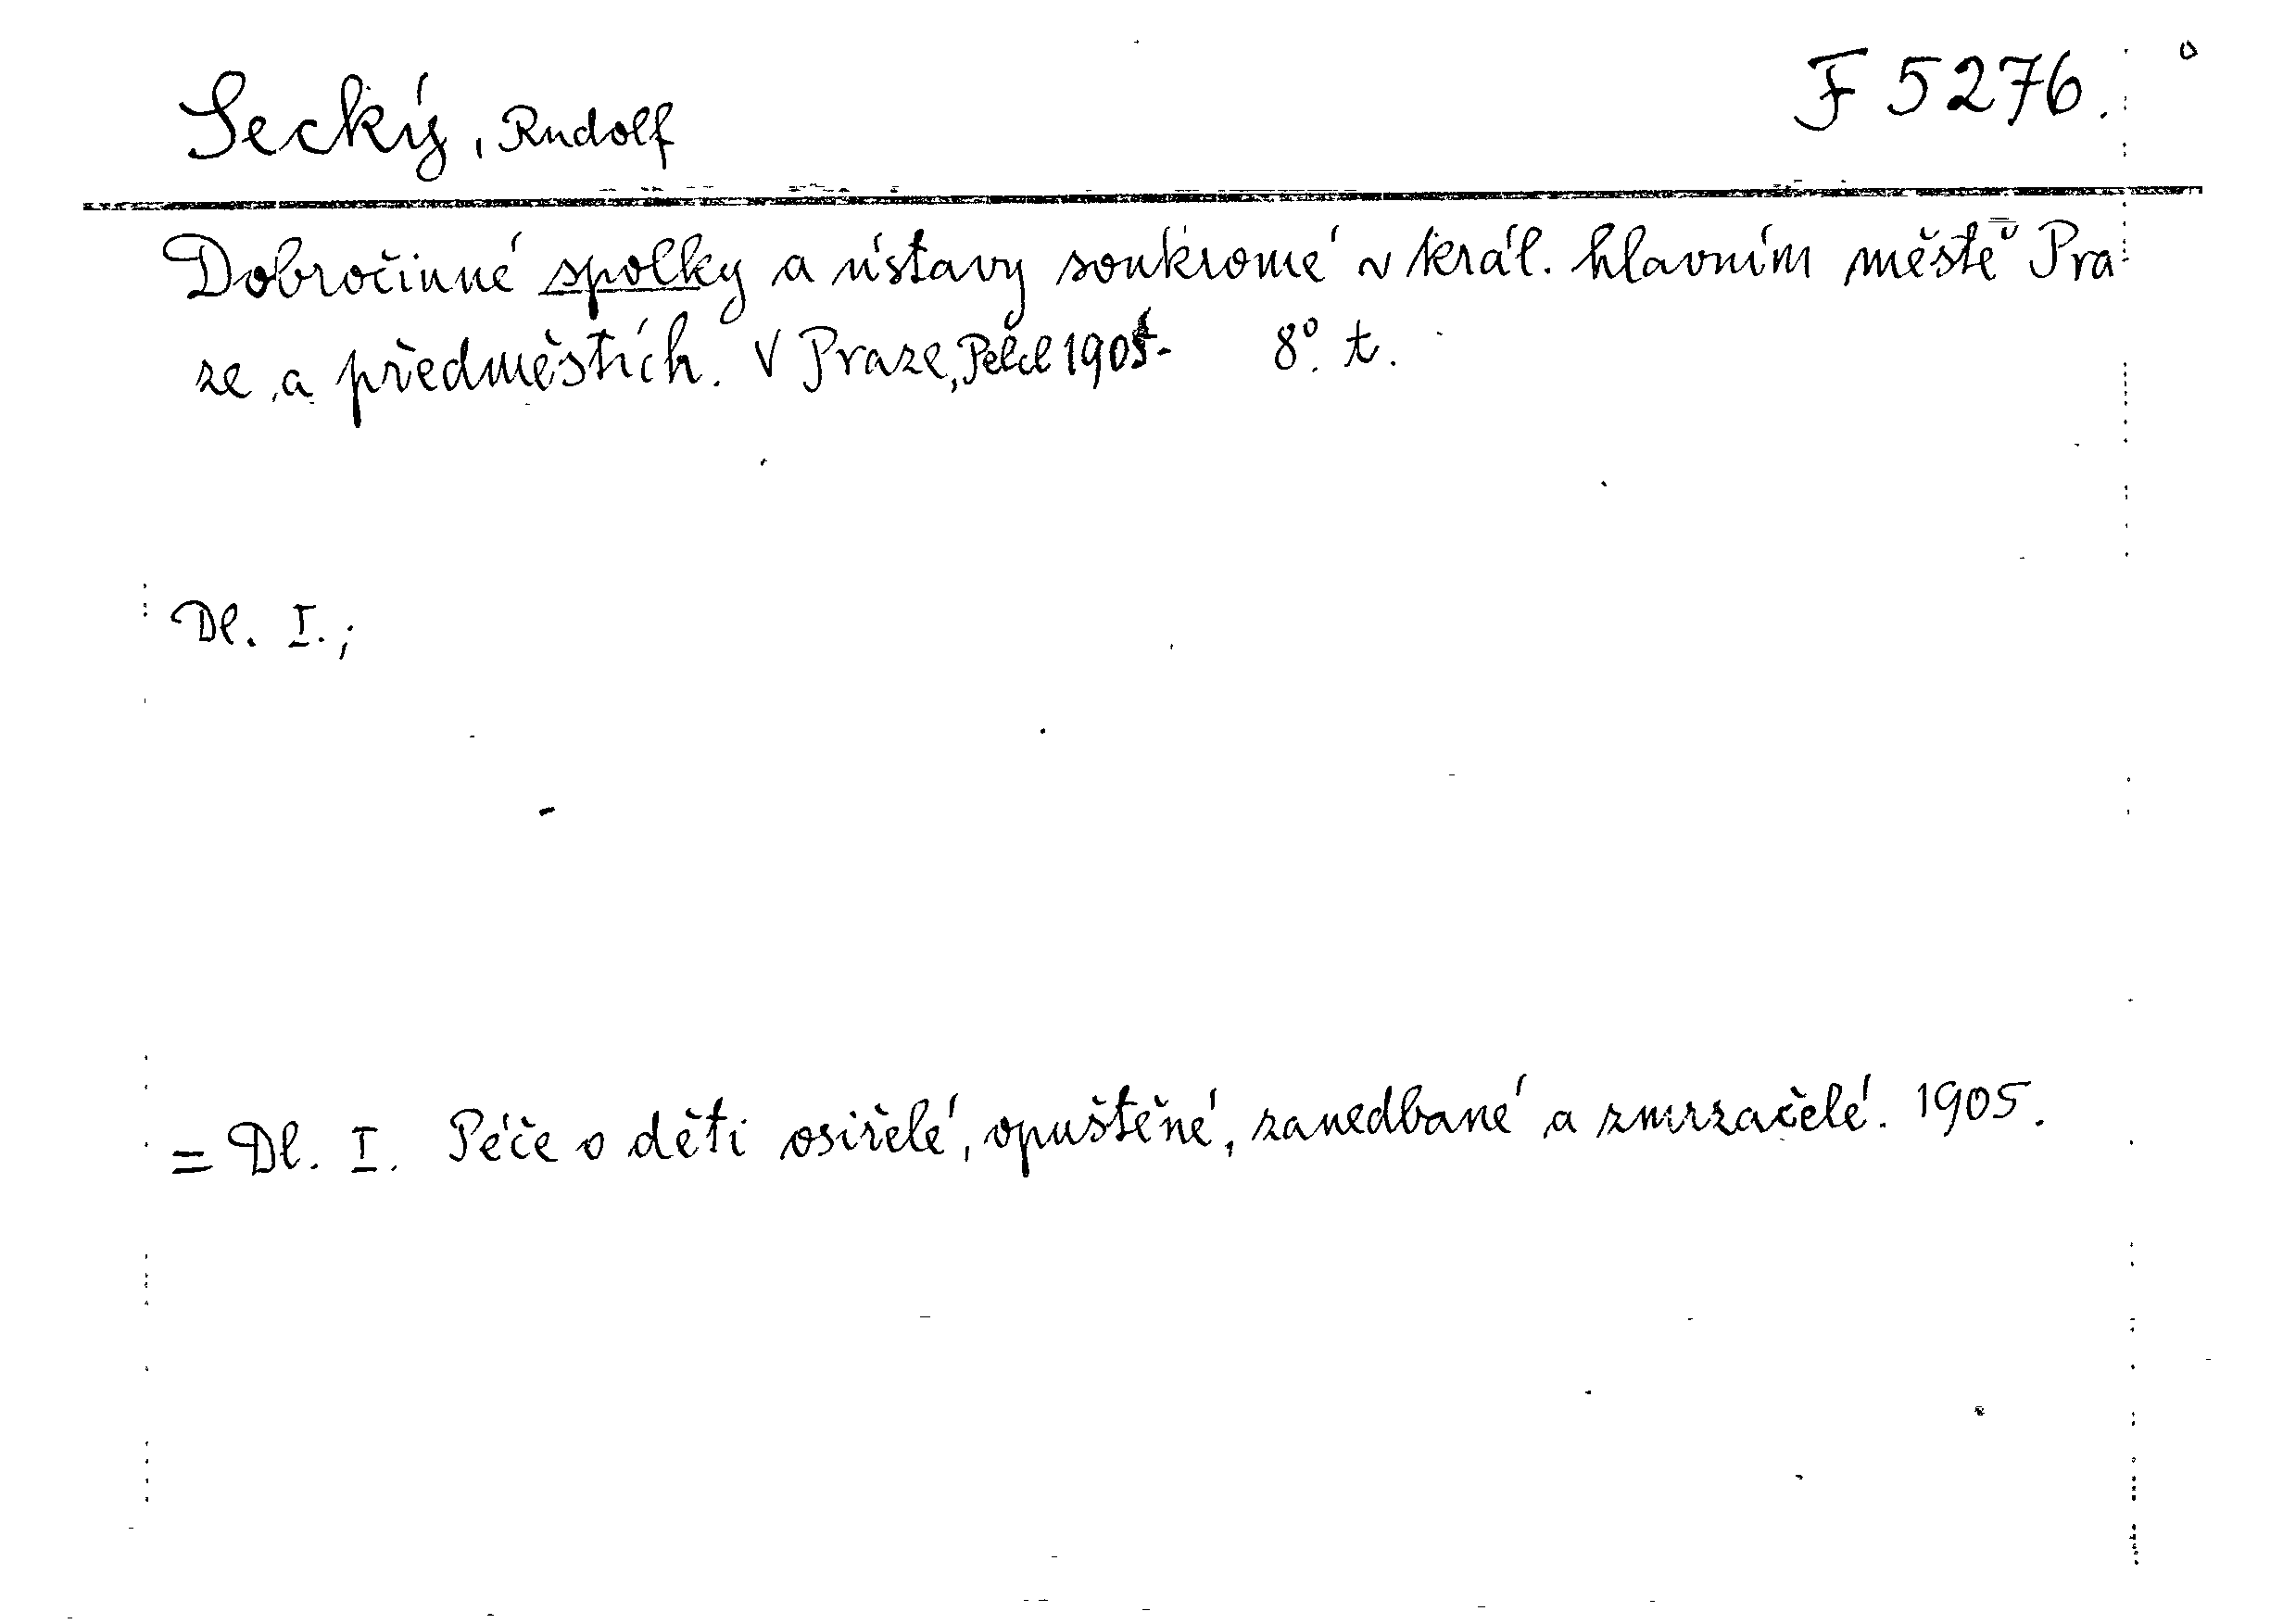 Secký, Rudolf
F 5276.
Dobročinné spolky a ústavy soukromé v král. hlavním městě Pra
ze a předměstích. V Praze, Pelcl 1905- 8°. t.
Dl. I.;
= Dl. I. Péče o děti osiřelé, opuštěné, zanedbané a zmrzačelé. 1905.